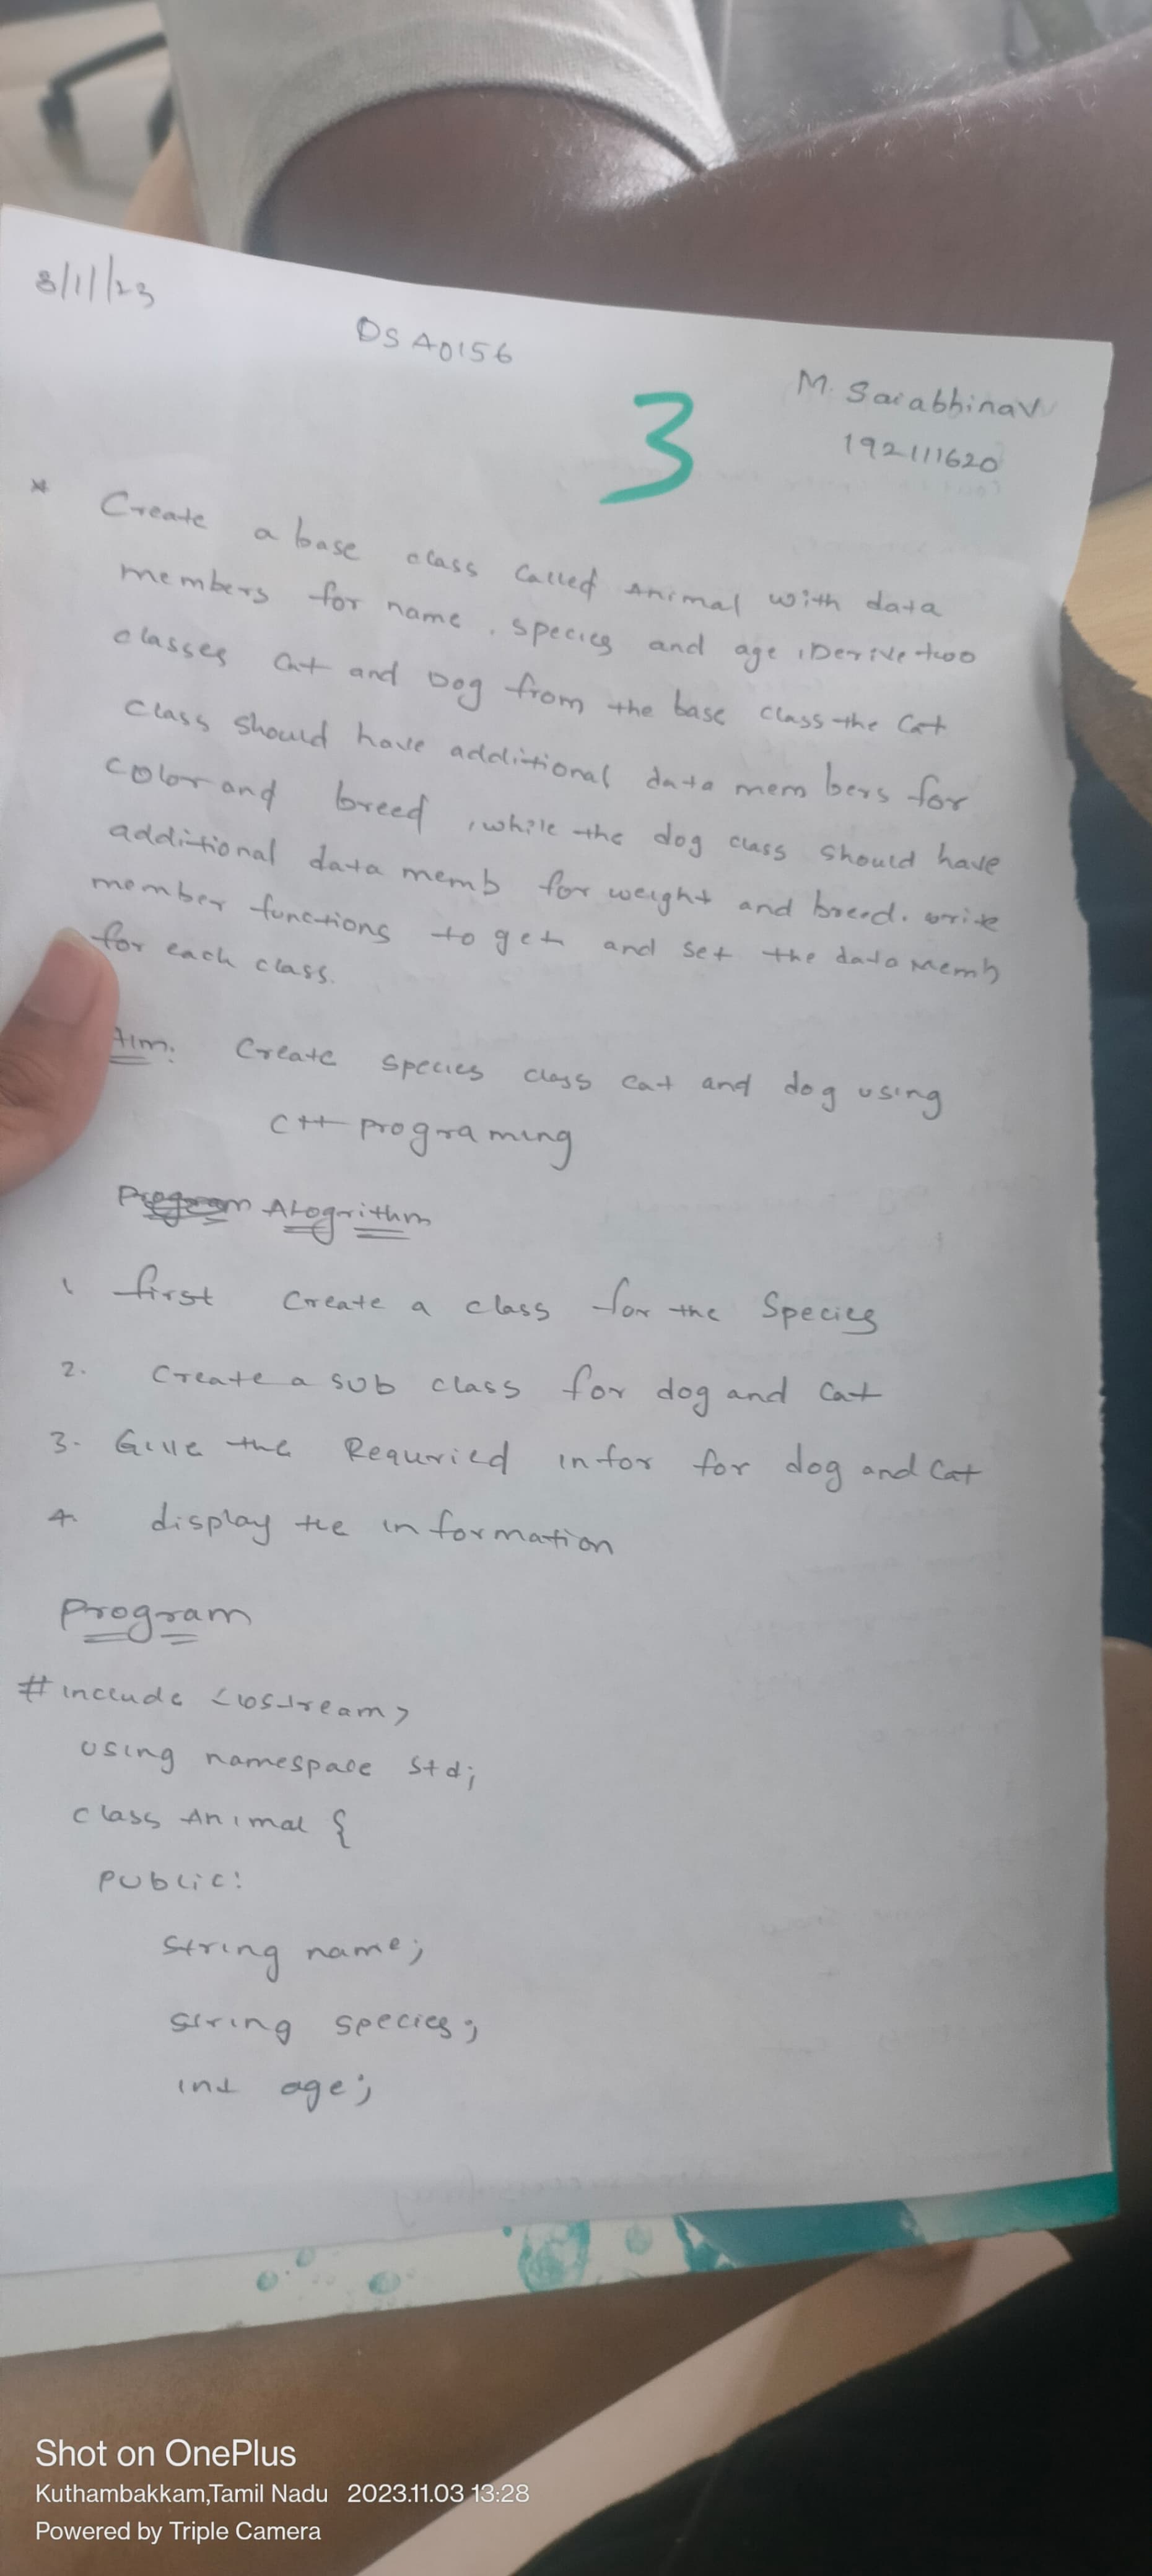 3/11/23
DSA0156
M. Saiabhinav
192111620
3
* Create a base class called Animal with data
members for name, species and age, Derive two
classes Cat and Dog from the base class the Cat
class should have additional data members for
color and breed, while the dog class should have
additional data memb for weight and breed. write
member functions to get and set the data memb
for each class.
Aim: Create species class cat and dog using
C++ programing
Program Alogrithm
1. first create a class for the species
2. create a sub class for dog and cat
3. Give the Requried infor for dog and cat
4. display the information
Program
#include <iostream>
using namespace std;
class Animal {
public:
string name;
string species;
int age;
Shot on OnePlus
Kuthambakkam,Tamil Nadu 2023.11.03 13:28
Powered by Triple Camera